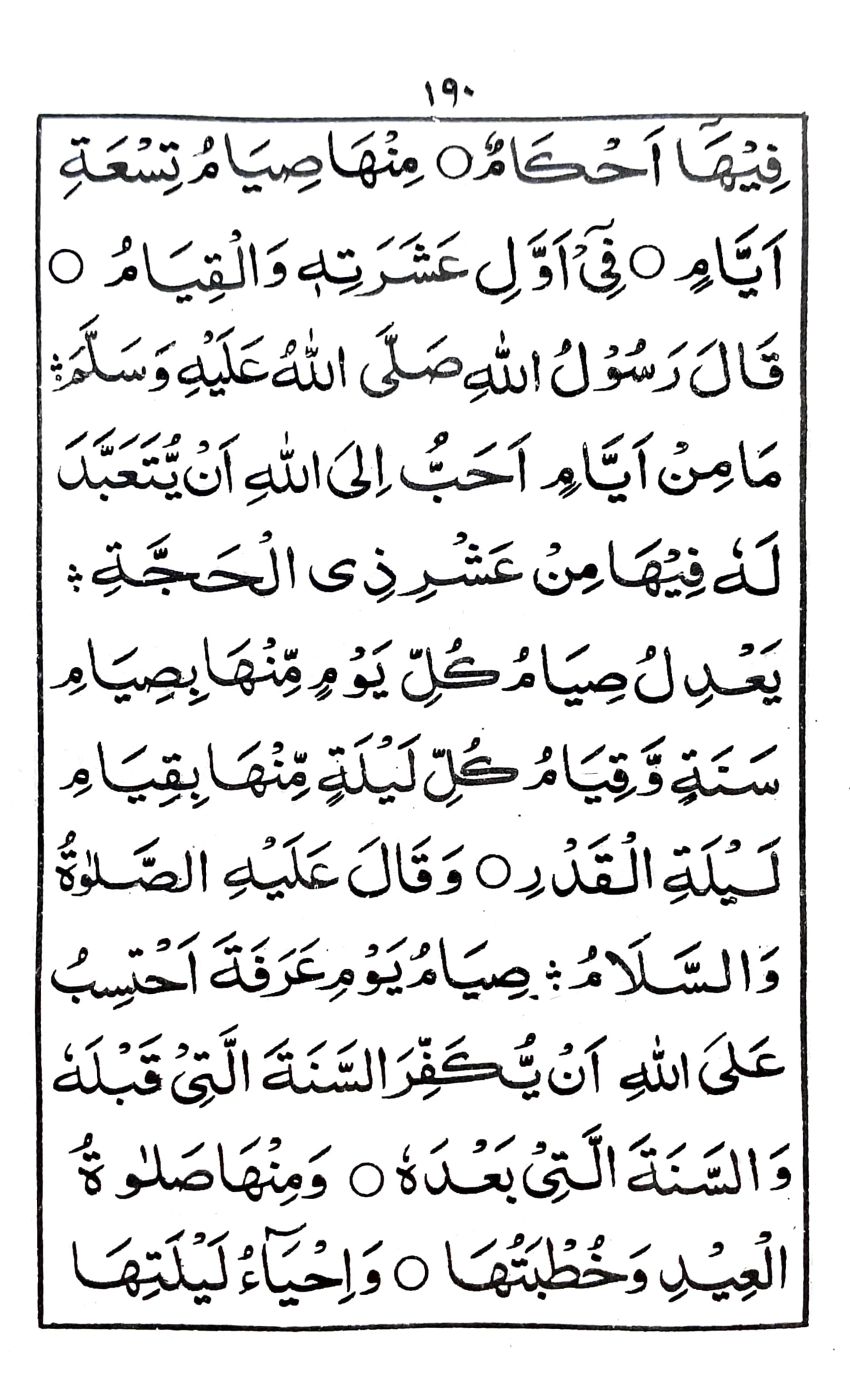 ١٩٠
فِيْهَآ اَحْكَامٌ ○ مِنْهَا صِيَامُ تِسْعَةِ
اَيَّامٍ ○ فِىْٓ اَوَّلِ عَشَرَتِهٖ وَالْقِيَامُ ○
قَالَ رَسُوْلُ اللهِ صَلَّى اللهُ عَلَيْهِ وَسَلَّمَ ؞
مَا مِنْ اَيَّامٍ اَحَبُّ اِلَى اللهِ اَنْ يُّتَعَبَّدَ
لَهٗ فِيْهَا مِنْ عَشْرِ ذِى الْحَجَّةِ ؞
يَعْدِلُ صِيَامُ كُلِّ يَوْمٍ مِّنْهَا بِصِيَامِ
سَنَةٍ وَّقِيَامُ كُلِّ لَيْلَةٍ مِّنْهَا بِقِيَامِ
لَيْلَةِ الْقَدْرِ ○ وَقَالَ عَلَيْهِ الصَّلٰوةُ
وَالسَّلَامُ ؞ صِيَامُ يَوْمِ عَرَفَةَ اَحْتَسِبُ
عَلَى اللهِ اَنْ يُّكَفِّرَ السَّنَةَ الَّتِىْ قَبْلَهٗ
وَالسَّنَةَ الَّتِىْ بَعْدَهٗ ○ وَمِنْهَا صَلٰوةُ
الْعِيْدِ وَخُطْبَتُهَا ○ وَاِحْيَآءُ لَيْلَتِهَا